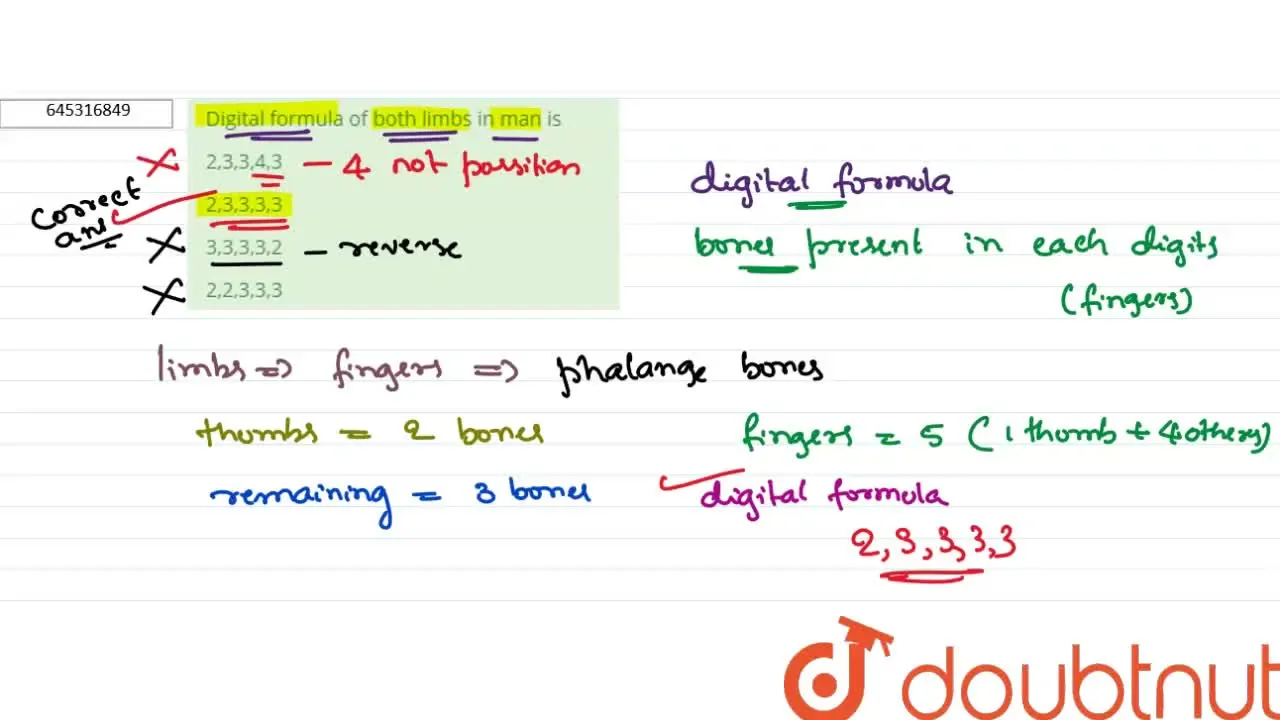 645316849
Digital formula of both limbs in man is
2,3,3,4,3 – 4 not parsition
2,3,3,3,3
correct
ans
3,3,3,3,2 – reverse
2,2,3,3,3
digital formula
bones present in each digits
(fingers)
limbs => fingers => phalange bones
thumbs = 2 bones
fingers = 5 (1 thumb + 4 others)
remaining = 3 bones
digital formula
2,3,3,3,3
doubtnut